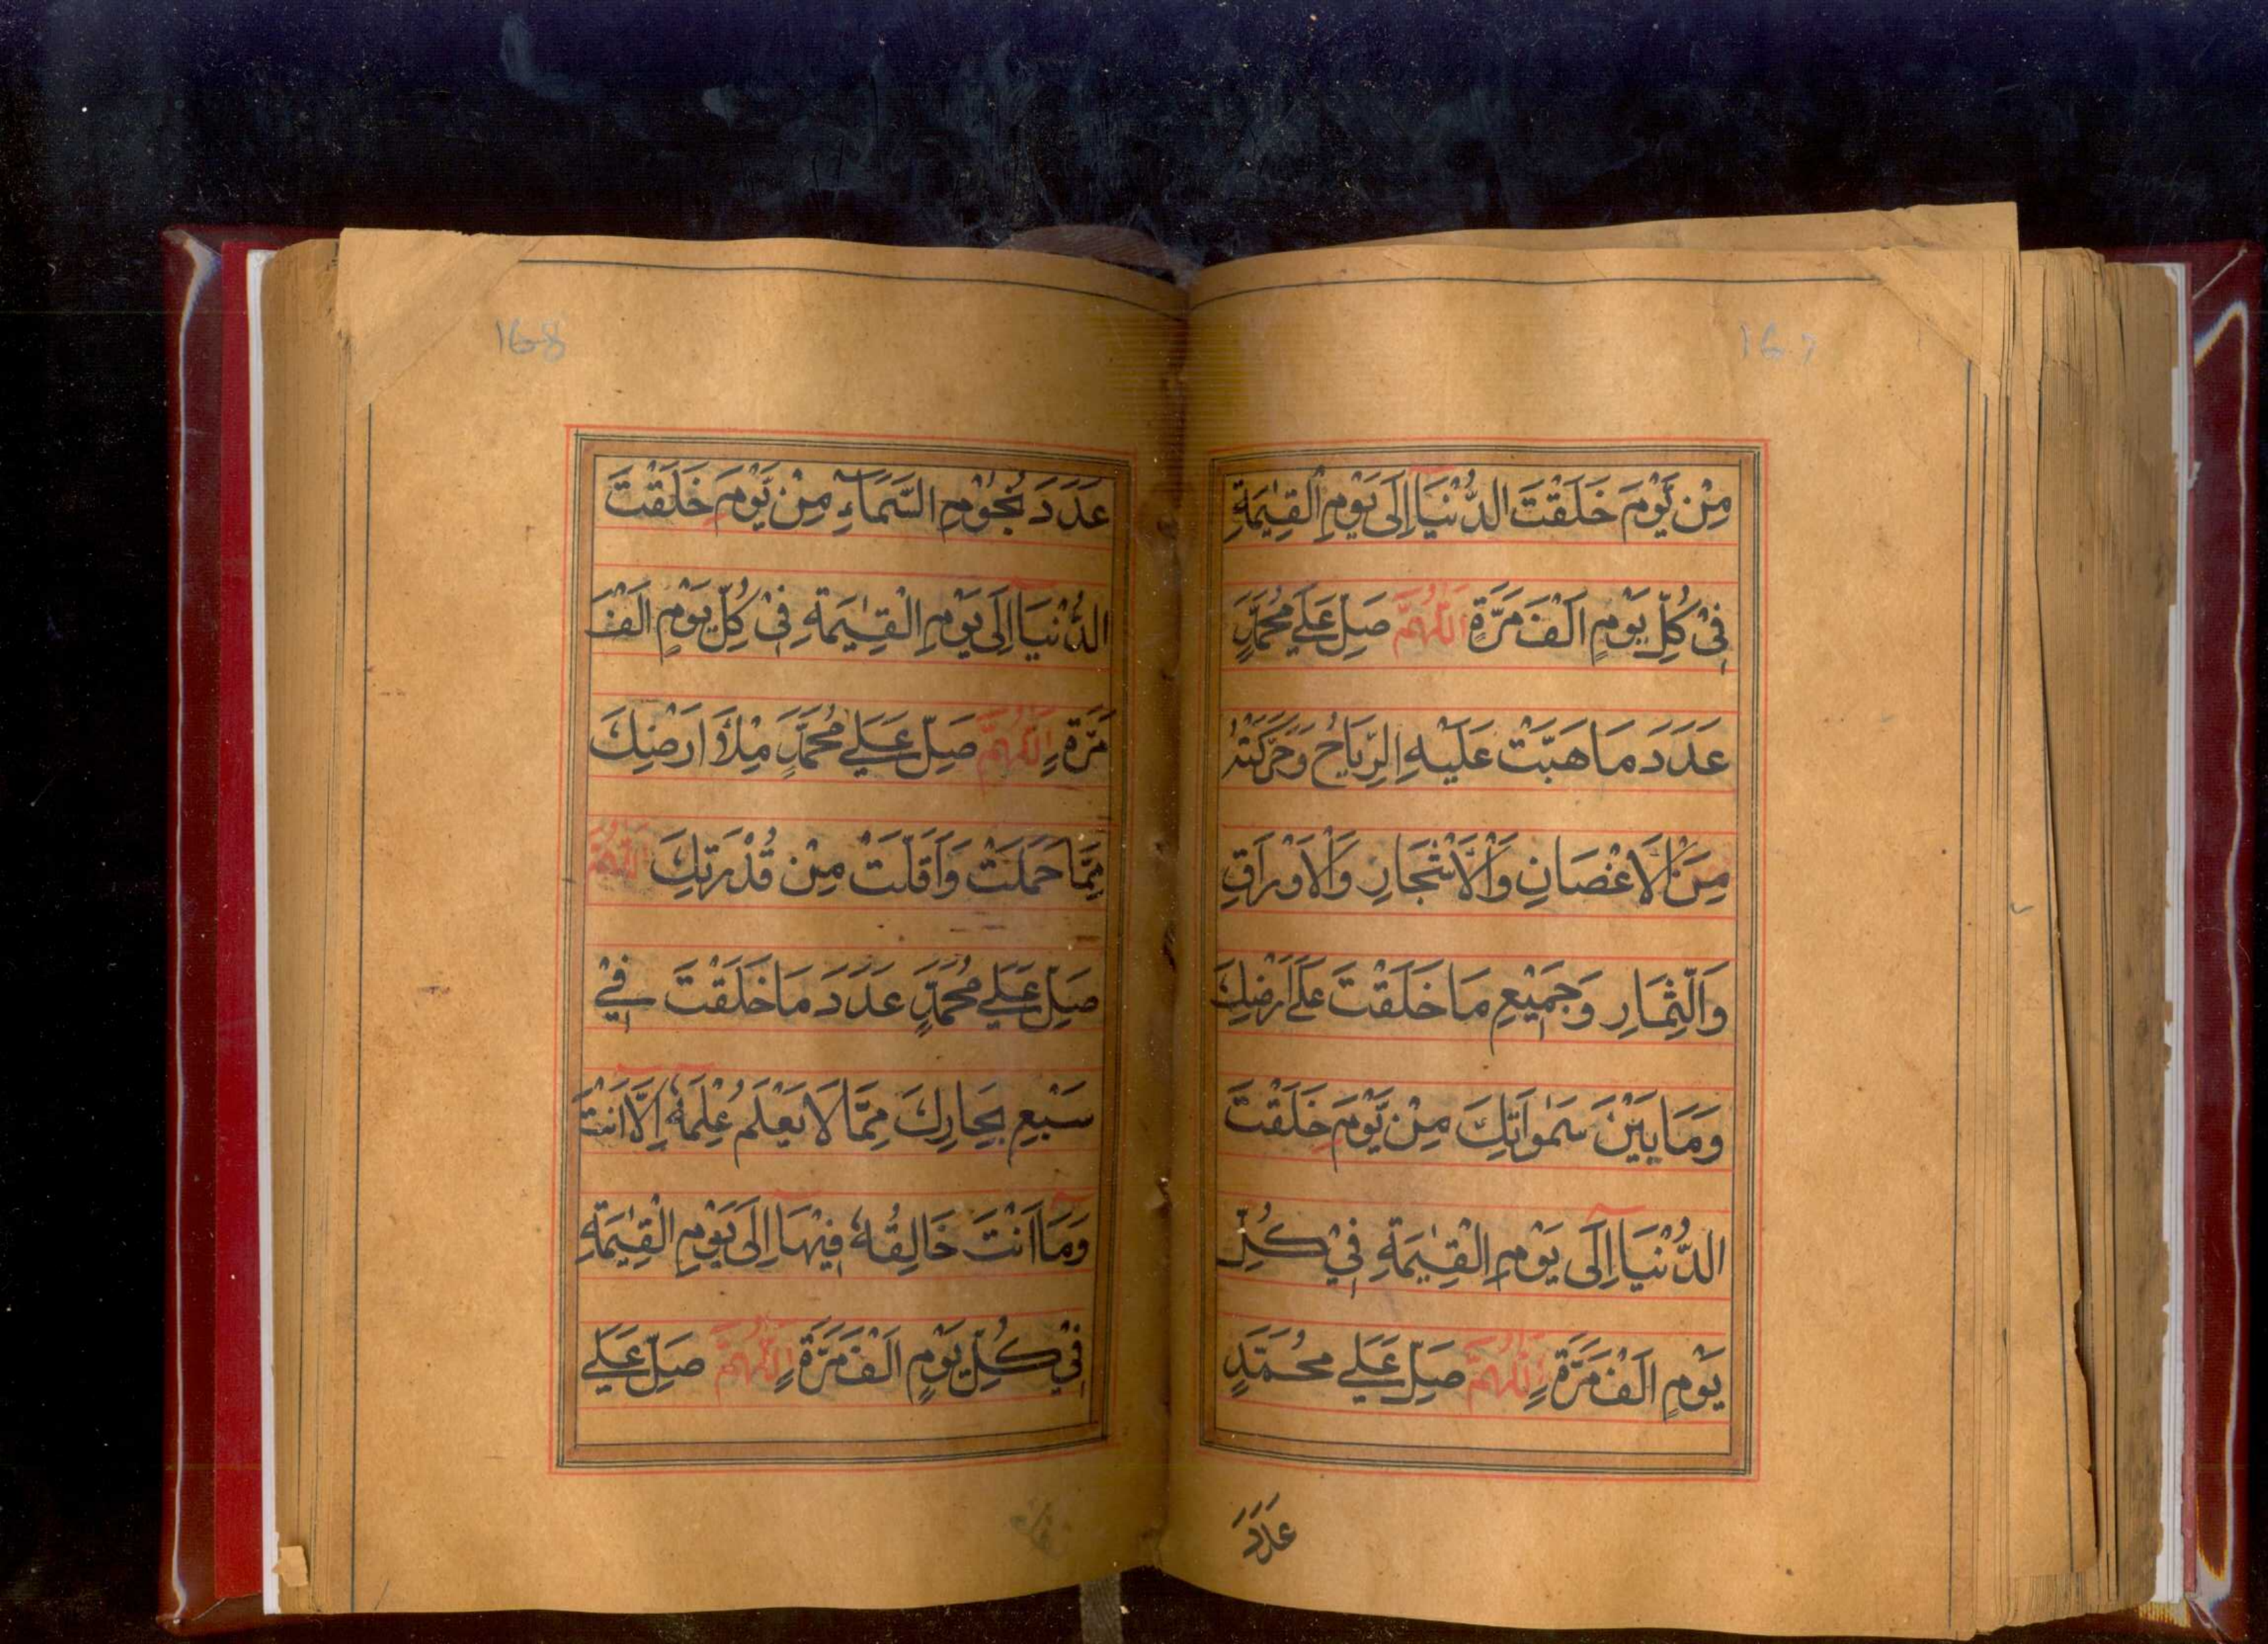 167
مِنْ يَّوْمَ خَلَقْتَ الدُّنْيَآ اِلَى يَوْمِ الْقِيٰمَةِ
فِيْ كُلِّ يَوْمٍ اَلْفَ مَرَّةٍ اَللّٰهُمَّ صَلِّ عَلٰى مُحَمَّدٍ
عَدَدَ مَا هَبَّتْ عَلَيْهِ الرِّيَاحُ وَحَرَّكَتْهُ
مِنَ الْاَغْصَانِ وَالْاَشْجَارِ وَالْاَوْرَاقِ
وَالثِّمَارِ وَجَمِيْعِ مَا خَلَقْتَ عَلٰى اَرْضِكَ
وَمَا بَيْنَ سَمٰوَاتِكَ مِنْ يَّوْمَ خَلَقْتَ
الدُّنْيَآ اِلَى يَوْمِ الْقِيٰمَةِ فِيْ كُلِّ
يَوْمٍ اَلْفَ مَرَّةٍ اَللّٰهُمَّ صَلِّ عَلٰى مُحَمَّدٍ
عَدَدَ
168
عَدَدَ نُجُوْمِ السَّمَآءِ مِنْ يَّوْمَ خَلَقْتَ
الدُّنْيَآ اِلَى يَوْمِ الْقِيٰمَةِ فِيْ كُلِّ يَوْمٍ اَلْفَ
مَرَّةٍ اَللّٰهُمَّ صَلِّ عَلٰى مُحَمَّدٍ مِلْأَ اَرْضِكَ
مِمَّا حَمَلَتْ وَاَقَلَّتْ مِنْ قُدْرَتِكَ اَللّٰهُمَّ
صَلِّ عَلٰى مُحَمَّدٍ عَدَدَ مَا خَلَقْتَ فِيْ
سَبْعِ بِحَارِكَ مِمَّا لَا يَعْلَمُ عِلْمَهٗٓ اِلَّآ اَنْتَ
وَمَآ اَنْتَ خَالِقُهٗ فِيْهَآ اِلَى يَوْمِ الْقِيٰمَةِ
فِيْ كُلِّ يَوْمٍ اَلْفَ مَرَّةٍ اَللّٰهُمَّ صَلِّ عَلٰى